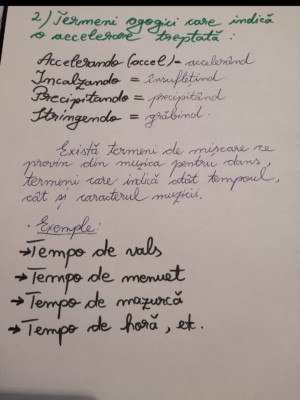 2) Termeni agogici care indică
o accelerare treptată :
Accelerando (accel) = accelerând
Incalzando = însuflețind
Precipitando = precipitând
Stringendo = grăbind.
Există termeni de mișcare ce
provin din muzica pentru dans,
termeni care indică atât tempoul,
cât și caracterul muzicii.
· Exemple:
→ Tempo de vals
→ Tempo de menuet
→ Tempo de mazurcă
→ Tempo de horă, etc.